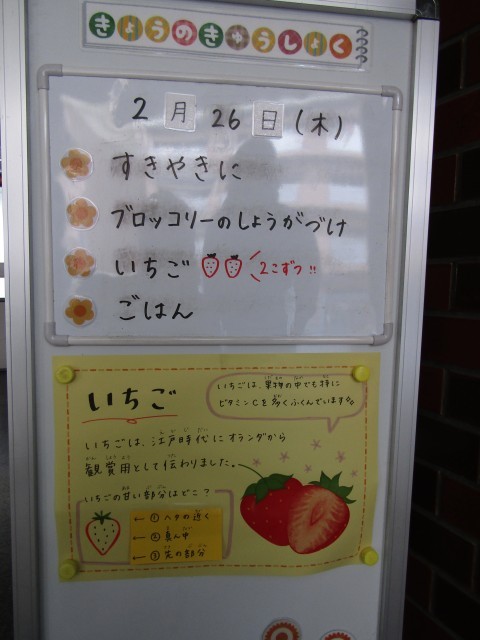 きょうのきゅうしょく
2月26日(木)
すきやきに
ブロッコリーのしょうがづけ
いちご 2こずつ!!
ごはん
いちご
いちごは、果物の中でも特に
ビタミンCを多くふくんでいます。
いちごは、江戸時代にオランダから
観賞用として伝わりました。
いちごの甘い部分はどこ?
← ① ヘタの近く
← ② 真ん中
← ③ 先の部分